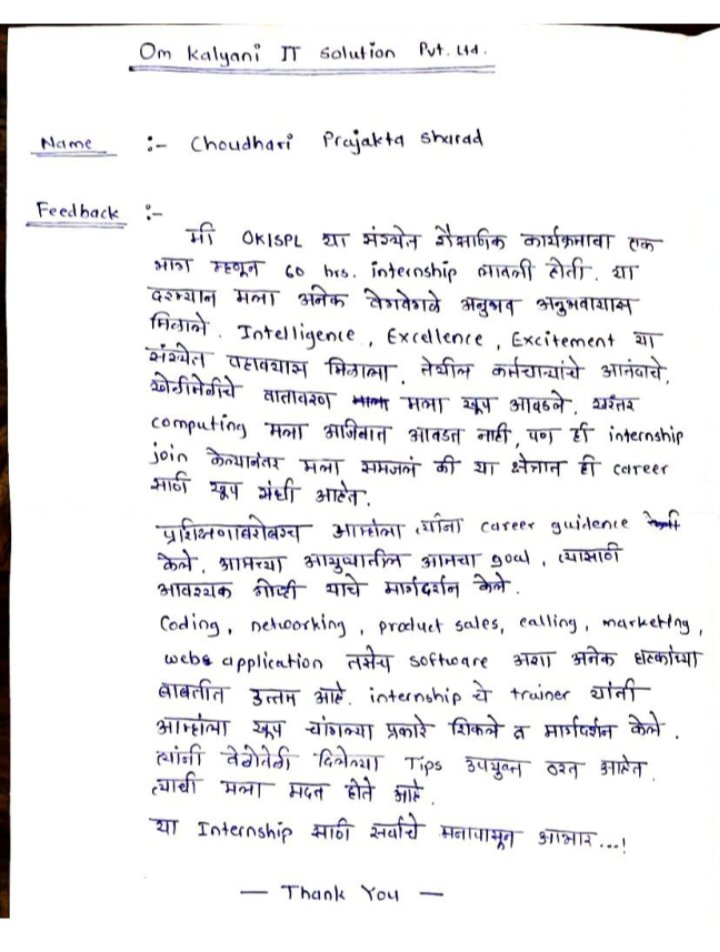 Om Kalyani IT Solution Pvt. Ltd.
Name :- Choudhari Prajakta Sharad
Feedback :-
मी OKISPL या संस्थेत शैक्षणिक कार्यक्रमाचा एक
भाग म्हणून 60 hrs. internship लावली होती. या
दरम्यान मला अनेक वेगवेगळे अनुभव अनुभवायास
मिळाले. Intelligence, Excellence, Excitement या
संस्थेत पहावयास मिळाला. तेथील कर्मचाऱ्यांचे आनंदाचे,
खेळीमेळीचे वातावरण मला खूप आवडले. खरंतर
computing मला अजिबात आवडत नाही, पण ही internship
join केल्यानंतर मला समजलं की या क्षेत्रात ही career
साठी खूप संधी आहेत.
प्रशिक्षणाबरोबरच आम्हांला त्यांना career guidence
केले. आमच्या आयुष्यातील आमचा goal, त्यासाठी
आवश्यक गोष्टी याचे मार्गदर्शन केले.
Coding, networking, product sales, calling, marketing,
webs application तसेच software अशा अनेक घटकांच्या
बाबतीत उत्तम आहे. internship चे trainer यांनी
आम्हांला खूप चांगल्या प्रकारे शिकले व मार्गदर्शन केले.
त्यांनी वेळोवेळी दिलेल्या Tips उपयुक्त ठरत आहेत.
त्याची मला मदत होते आहे.
या Internship साठी सर्वांचे मनापासून आभार...!
— Thank You —